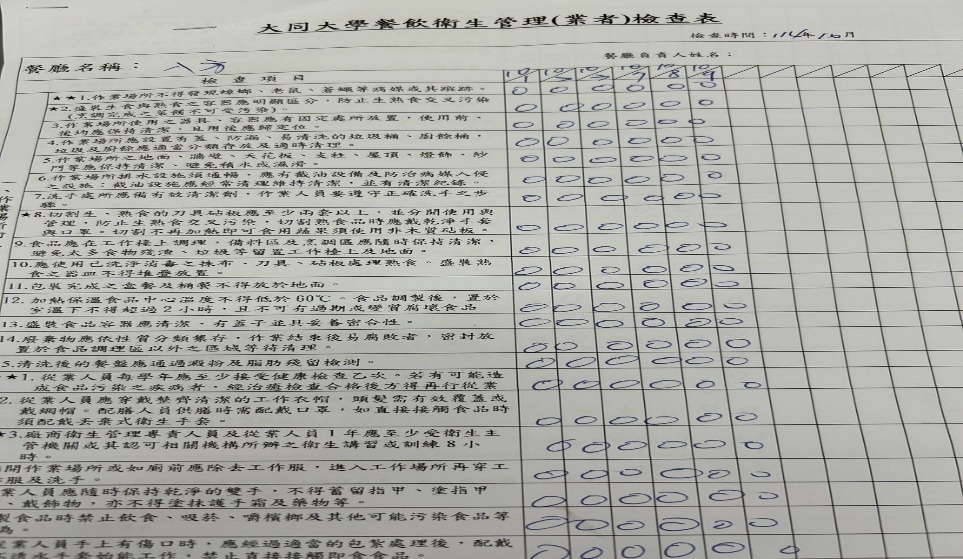 大同大學餐飲衛生管理(業者)檢查表
檢查時間：114年10月
餐廳名稱：八方
餐廳負責人姓名：
檢查項目
10 10 10 10 10 10
1 2 3 7 8 9
★★1.作業場所不得發現蟑螂、老鼠、蒼蠅等病媒或其蹤跡。
★2.盛裝生食與熟食之容器應明顯區分，防止生熟食交叉污染
(烹調完成之菜餚不可受污染)。
3.作業場所使用之器具、容器應有固定處所放置，使用前、
後均應保持清潔，且用後應歸定位。
4.作業場所應設置有蓋、防漏、易清洗的垃圾桶、廚餘桶，
垃圾及廚餘應適當分類存放及適時清理。
5.作業場所之地面、牆壁、天花板、支柱、屋頂、燈飾、紗
門等應保持清潔、避免積水或濕滑。
6.作業場所排水設施須通暢，應有截油設備及防治病媒入侵
之設施；截油設施應經常清理維持清潔，並有清潔紀錄。
7.洗手處所應備有效清潔劑，作業人員要遵守正確洗手之步
驟。
★8.切割生、熟食的刀具砧板應至少兩套以上，並分開使用與
管理，防止生熟食交叉污染，切割熟食品時應戴乾淨手套
與口罩。切割不再加熱即可食用蔬果須使用非木質砧板。
9.食品應在工作檯上調理，備料區及烹調區應隨時保持清潔，
避免太多食物殘渣、垃圾等留置工作檯上及地面。
10.應使用已洗淨消毒之抹布、刀具、砧板處理熟食。盛裝熟
食之器皿不得堆疊放置。
11.包裝完成之盒餐及桶餐不得放於地面。
12.加熱保溫食品中心溫度不得低於60℃。食品調製後，置於
室溫下不得超過2小時，且不可有過期或變質腐壞食品
13.盛裝食品容器應清潔、有蓋子並具妥善密合性。
14.廢棄物應依性質分類集存，作業結束後易腐敗者，密封放
置於食品調理區以外之區域等待清理。
5.清洗後的餐盤應通過澱粉及脂肪殘留檢測。
★1.從業人員每學年應至少接受健康檢查乙次。若有可能造
成食品污染之疾病者，經治療檢查合格後方得再行從業
2.從業人員應穿戴整齊清潔的工作衣帽，頭髮需有效覆蓋或
戴網帽。配膳人員供膳時需配戴口罩，如直接接觸食品時
須配戴丟棄式衛生手套。
★3.廠商衛生管理專責人員及從業人員1年應至少受衛生主
管機關或其認可相關機構所辦之衛生講習或訓練8小
時。
開作業場所或如廁前應除去工作服，進入工作場所再穿工
服及洗手。
業人員應隨時保持乾淨的雙手，不得蓄留指甲、塗指甲
、戴飾物，亦不得塗抹護手霜及藥物等。
製食品時禁止飲食、吸菸、嚼檳榔及其他可能污染食品等
為。
業人員手上有傷口時，應經過適當的包紮處理後，配戴
透水手套始能工作，禁止直接接觸即食食品。